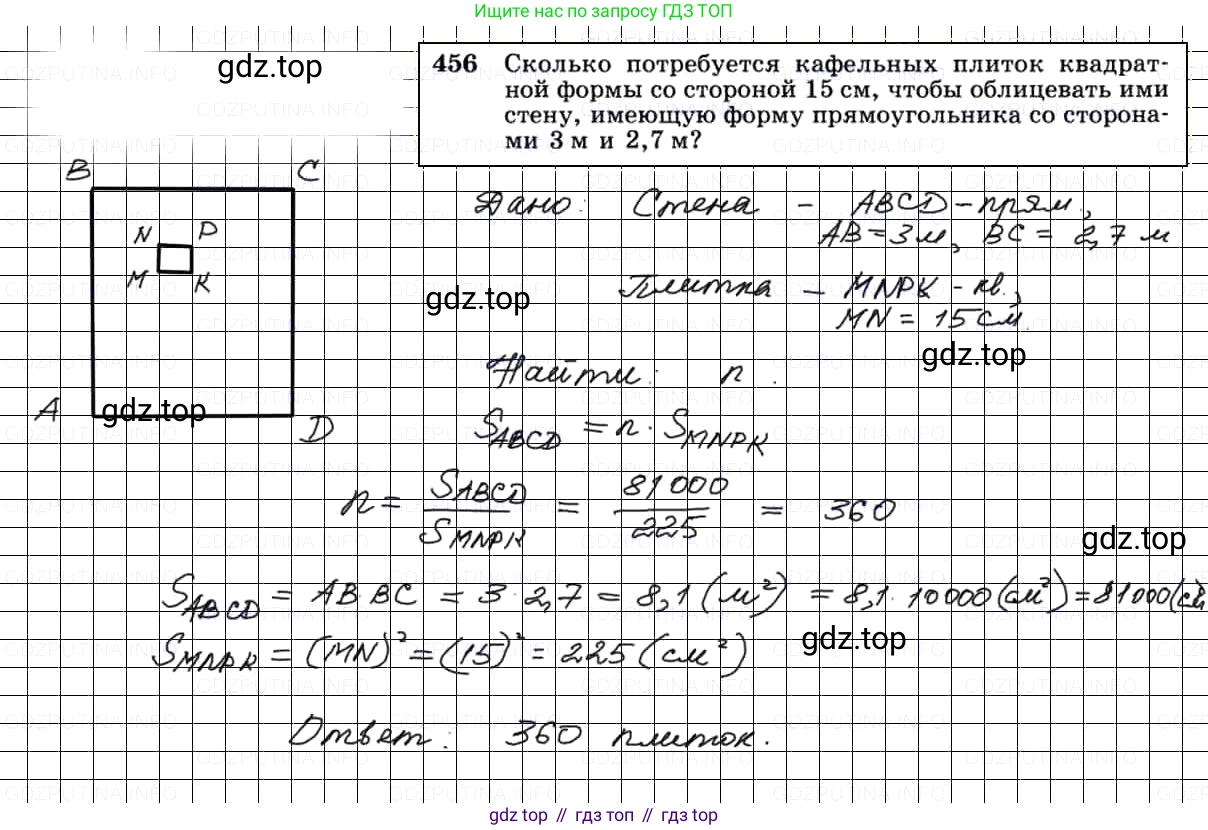 Ищите нас по запросу ГДЗ ТОП
gdz.top
456 Сколько потребуется кафельных плиток квадрат-
ной формы со стороной 15 см, чтобы облицевать ими
стену, имеющую форму прямоугольника со сторона-
ми 3 м и 2,7 м?
B C
N P
M K
A D
gdz.top
Дано: Стена – ABCD – прям.,
AB = 3 м, BC = 2,7 м
Плитка – MNPK – кв.,
MN = 15 см.
gdz.top
gdz.top
Найти: n.
S_ABCD = n · S_MNPK
n = S_ABCD / S_MNPK = 81000 / 225 = 360
gdz.top
S_ABCD = AB BC = 3 · 2,7 = 8,1 (м²) = 8,1 · 10000 (см²) = 81000 (см
S_MNPK = (MN)² = (15)² = 225 (см²)
gdz.top
Ответ: 360 плиток.
gdz топ // гдз топ // gdz top
GDZPUTINA.INFO